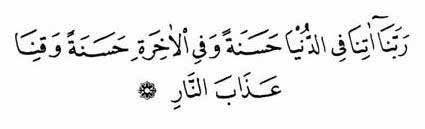 رَبَّنَآ اٰتِنَا فِي الدُّنْيَا حَسَنَةً وَفِي الْاٰخِرَةِ حَسَنَةً وَقِنَا
عَذَابَ النَّارِ